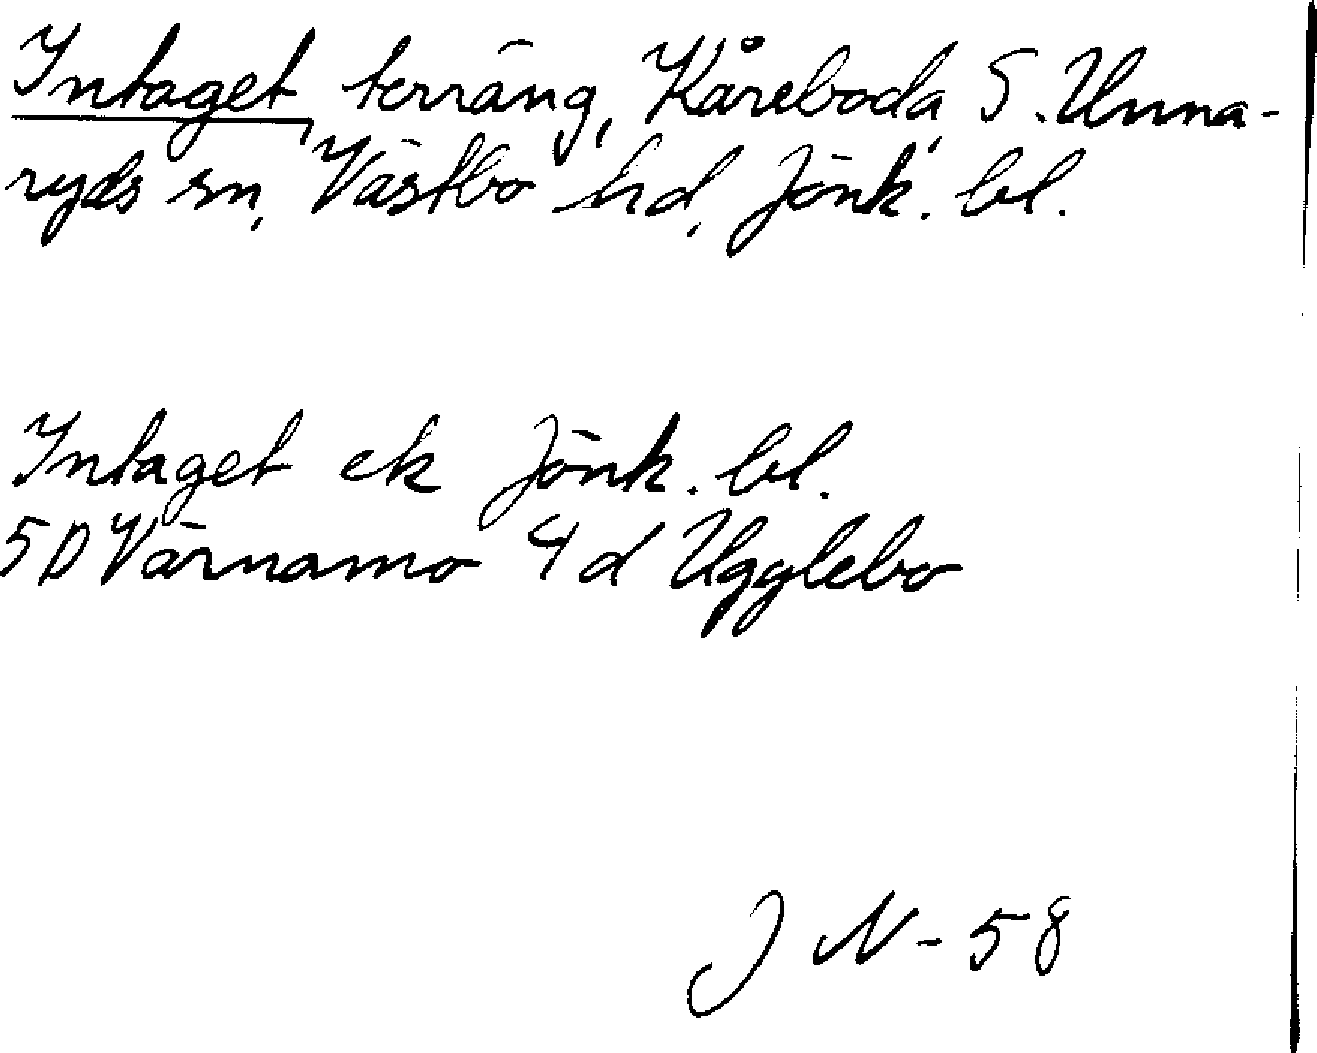 Intaget, terräng, Kåreboda, S. Unna-
ryds sn, Västbo hd, Jönk. bl.
Intaget ek Jönk. bl.
5D Värnamo 4d Ugglebo
J N - 58